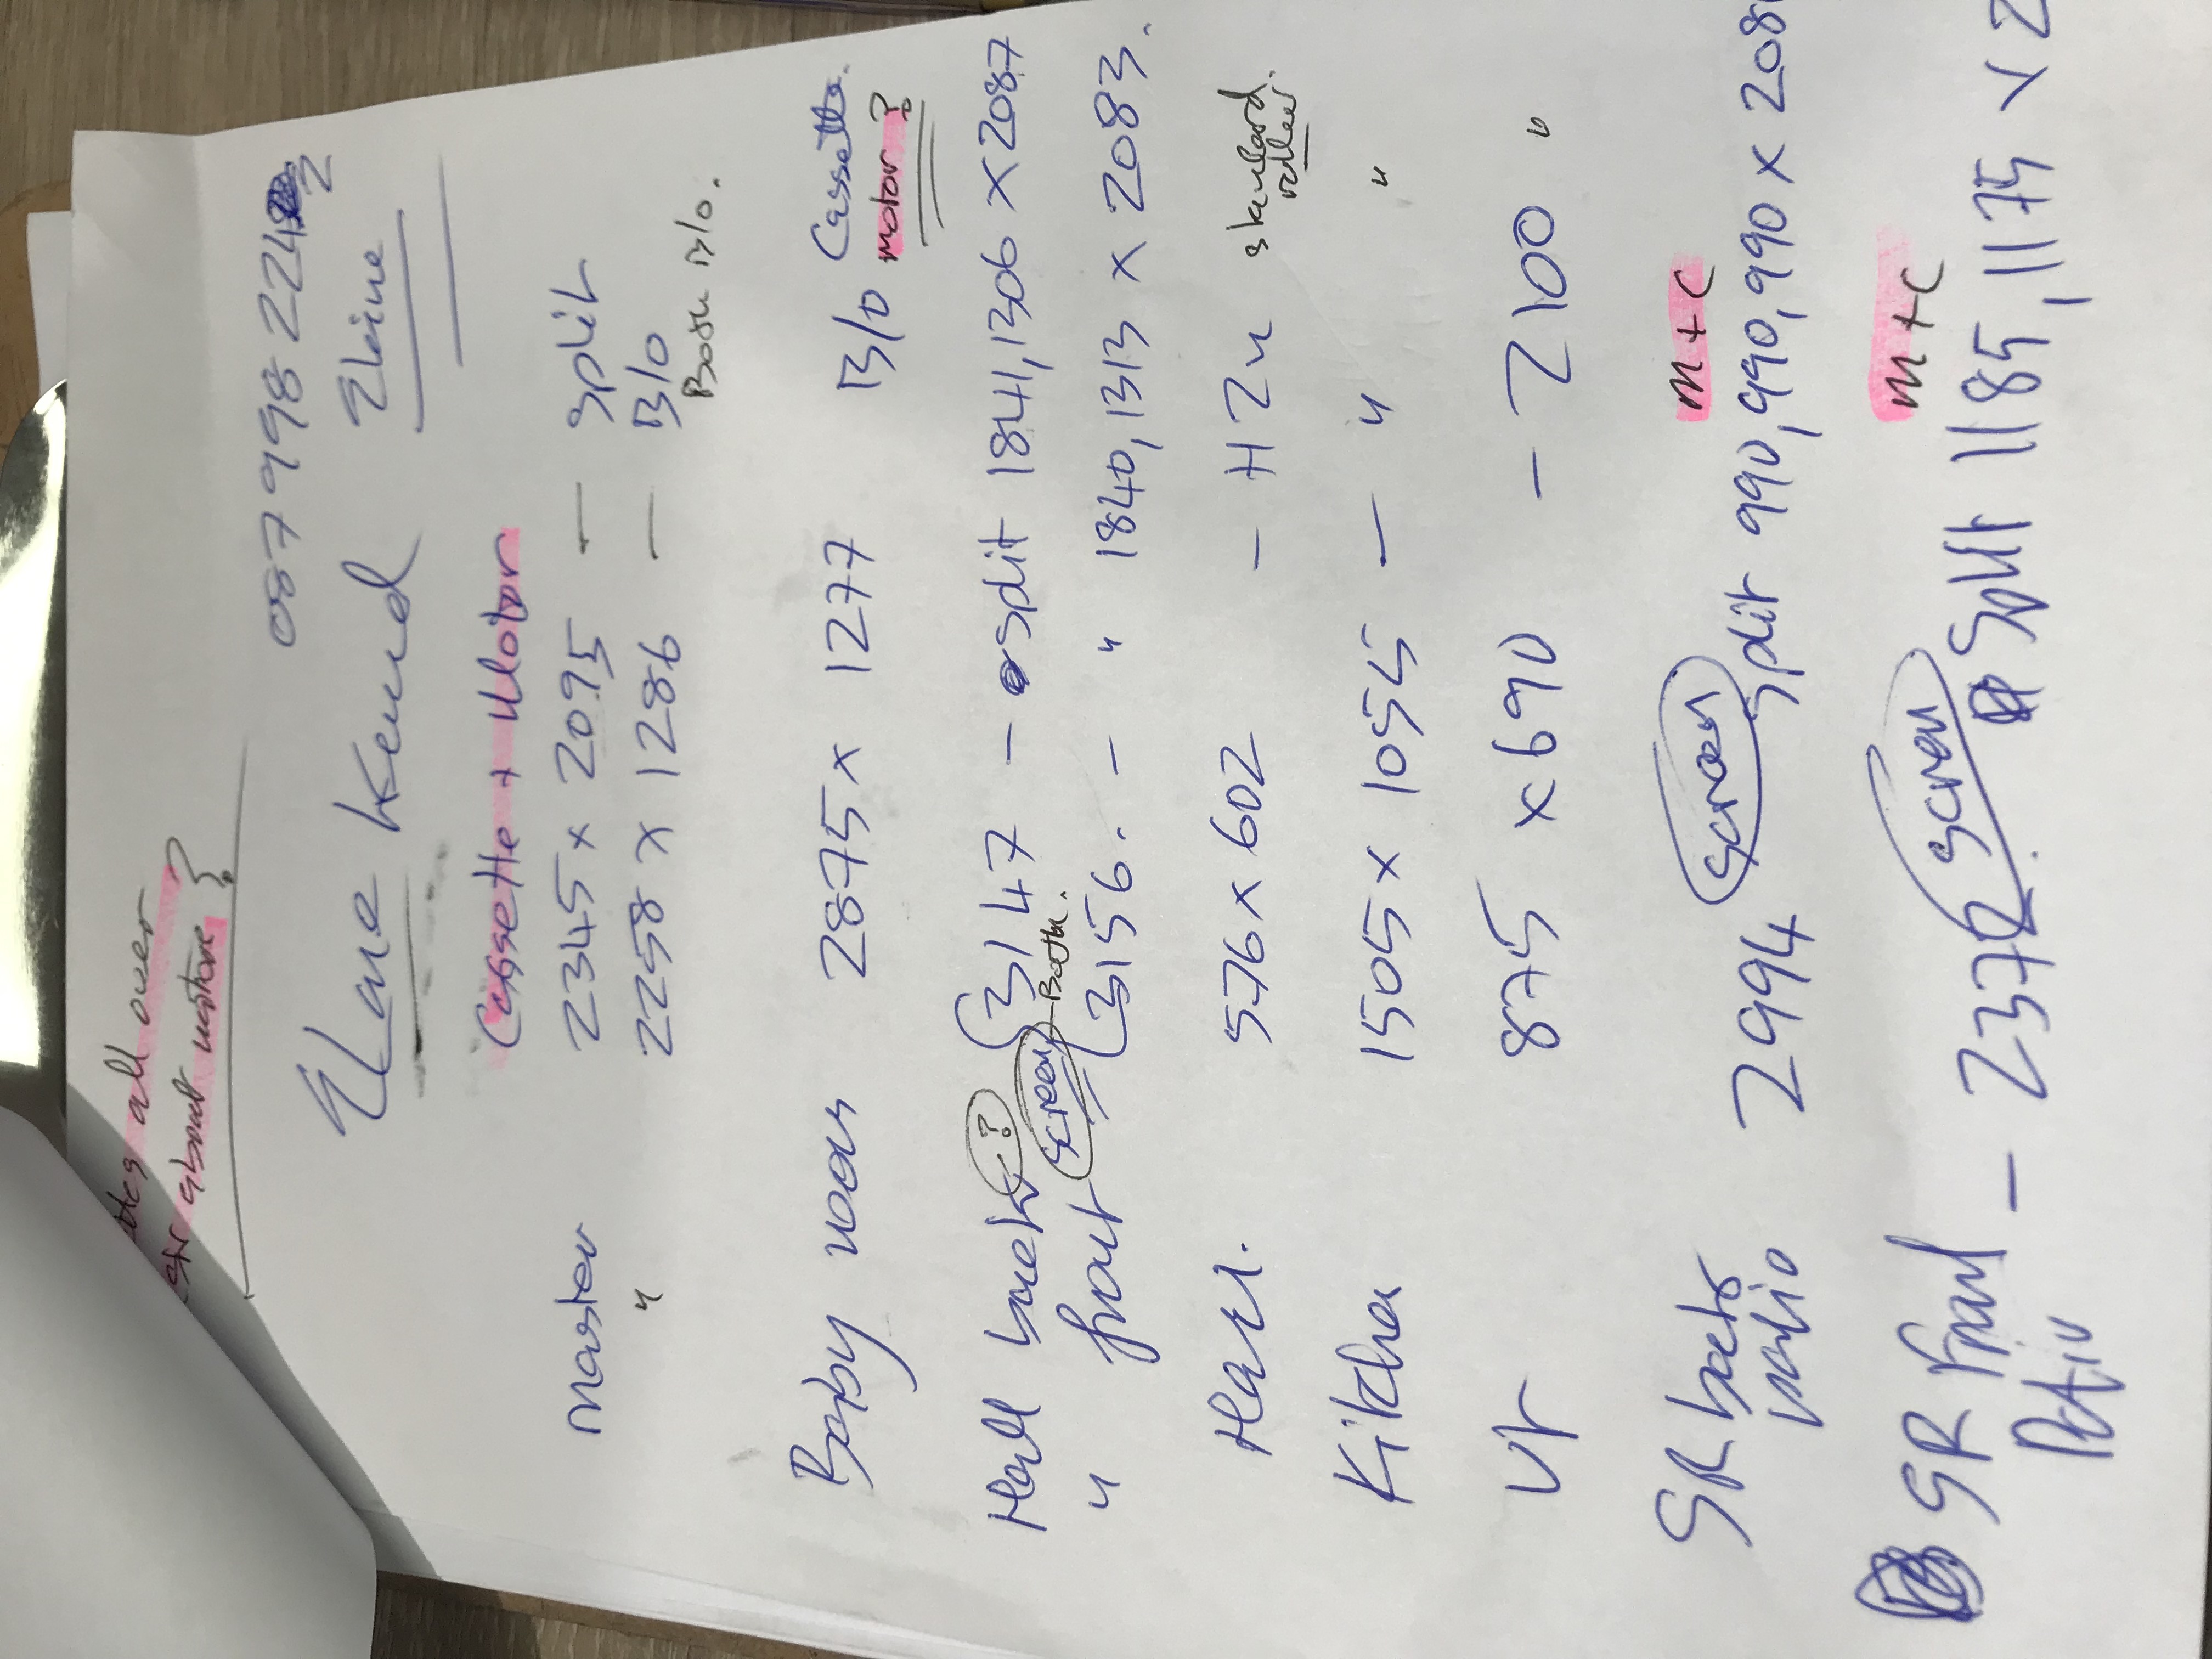 all over
about motion?
087 9982242
Elaine
Elaine Kennd
Cassette + Motor
master 2345 x 2095 — split
" 2258 x 1286 — B/O
Both B/O.
Baby room 2875 x 1277 B/O Cassette.
motor?
Hall back ? 3147 - split 1841, 1306 x 2087
screen Both.
" front 3156. - " 1840, 1313 x 2083.
576 x 602 - H2u standard
roller
Kitchen 1505 x 1055 - " "
875 x 690 - 2100 "
m+c
SR back 2994 screen split 990, 990, 990 x 208
patio
m+c
SR Front - 2372 screen Split 1185, 1175 x 2
Patio